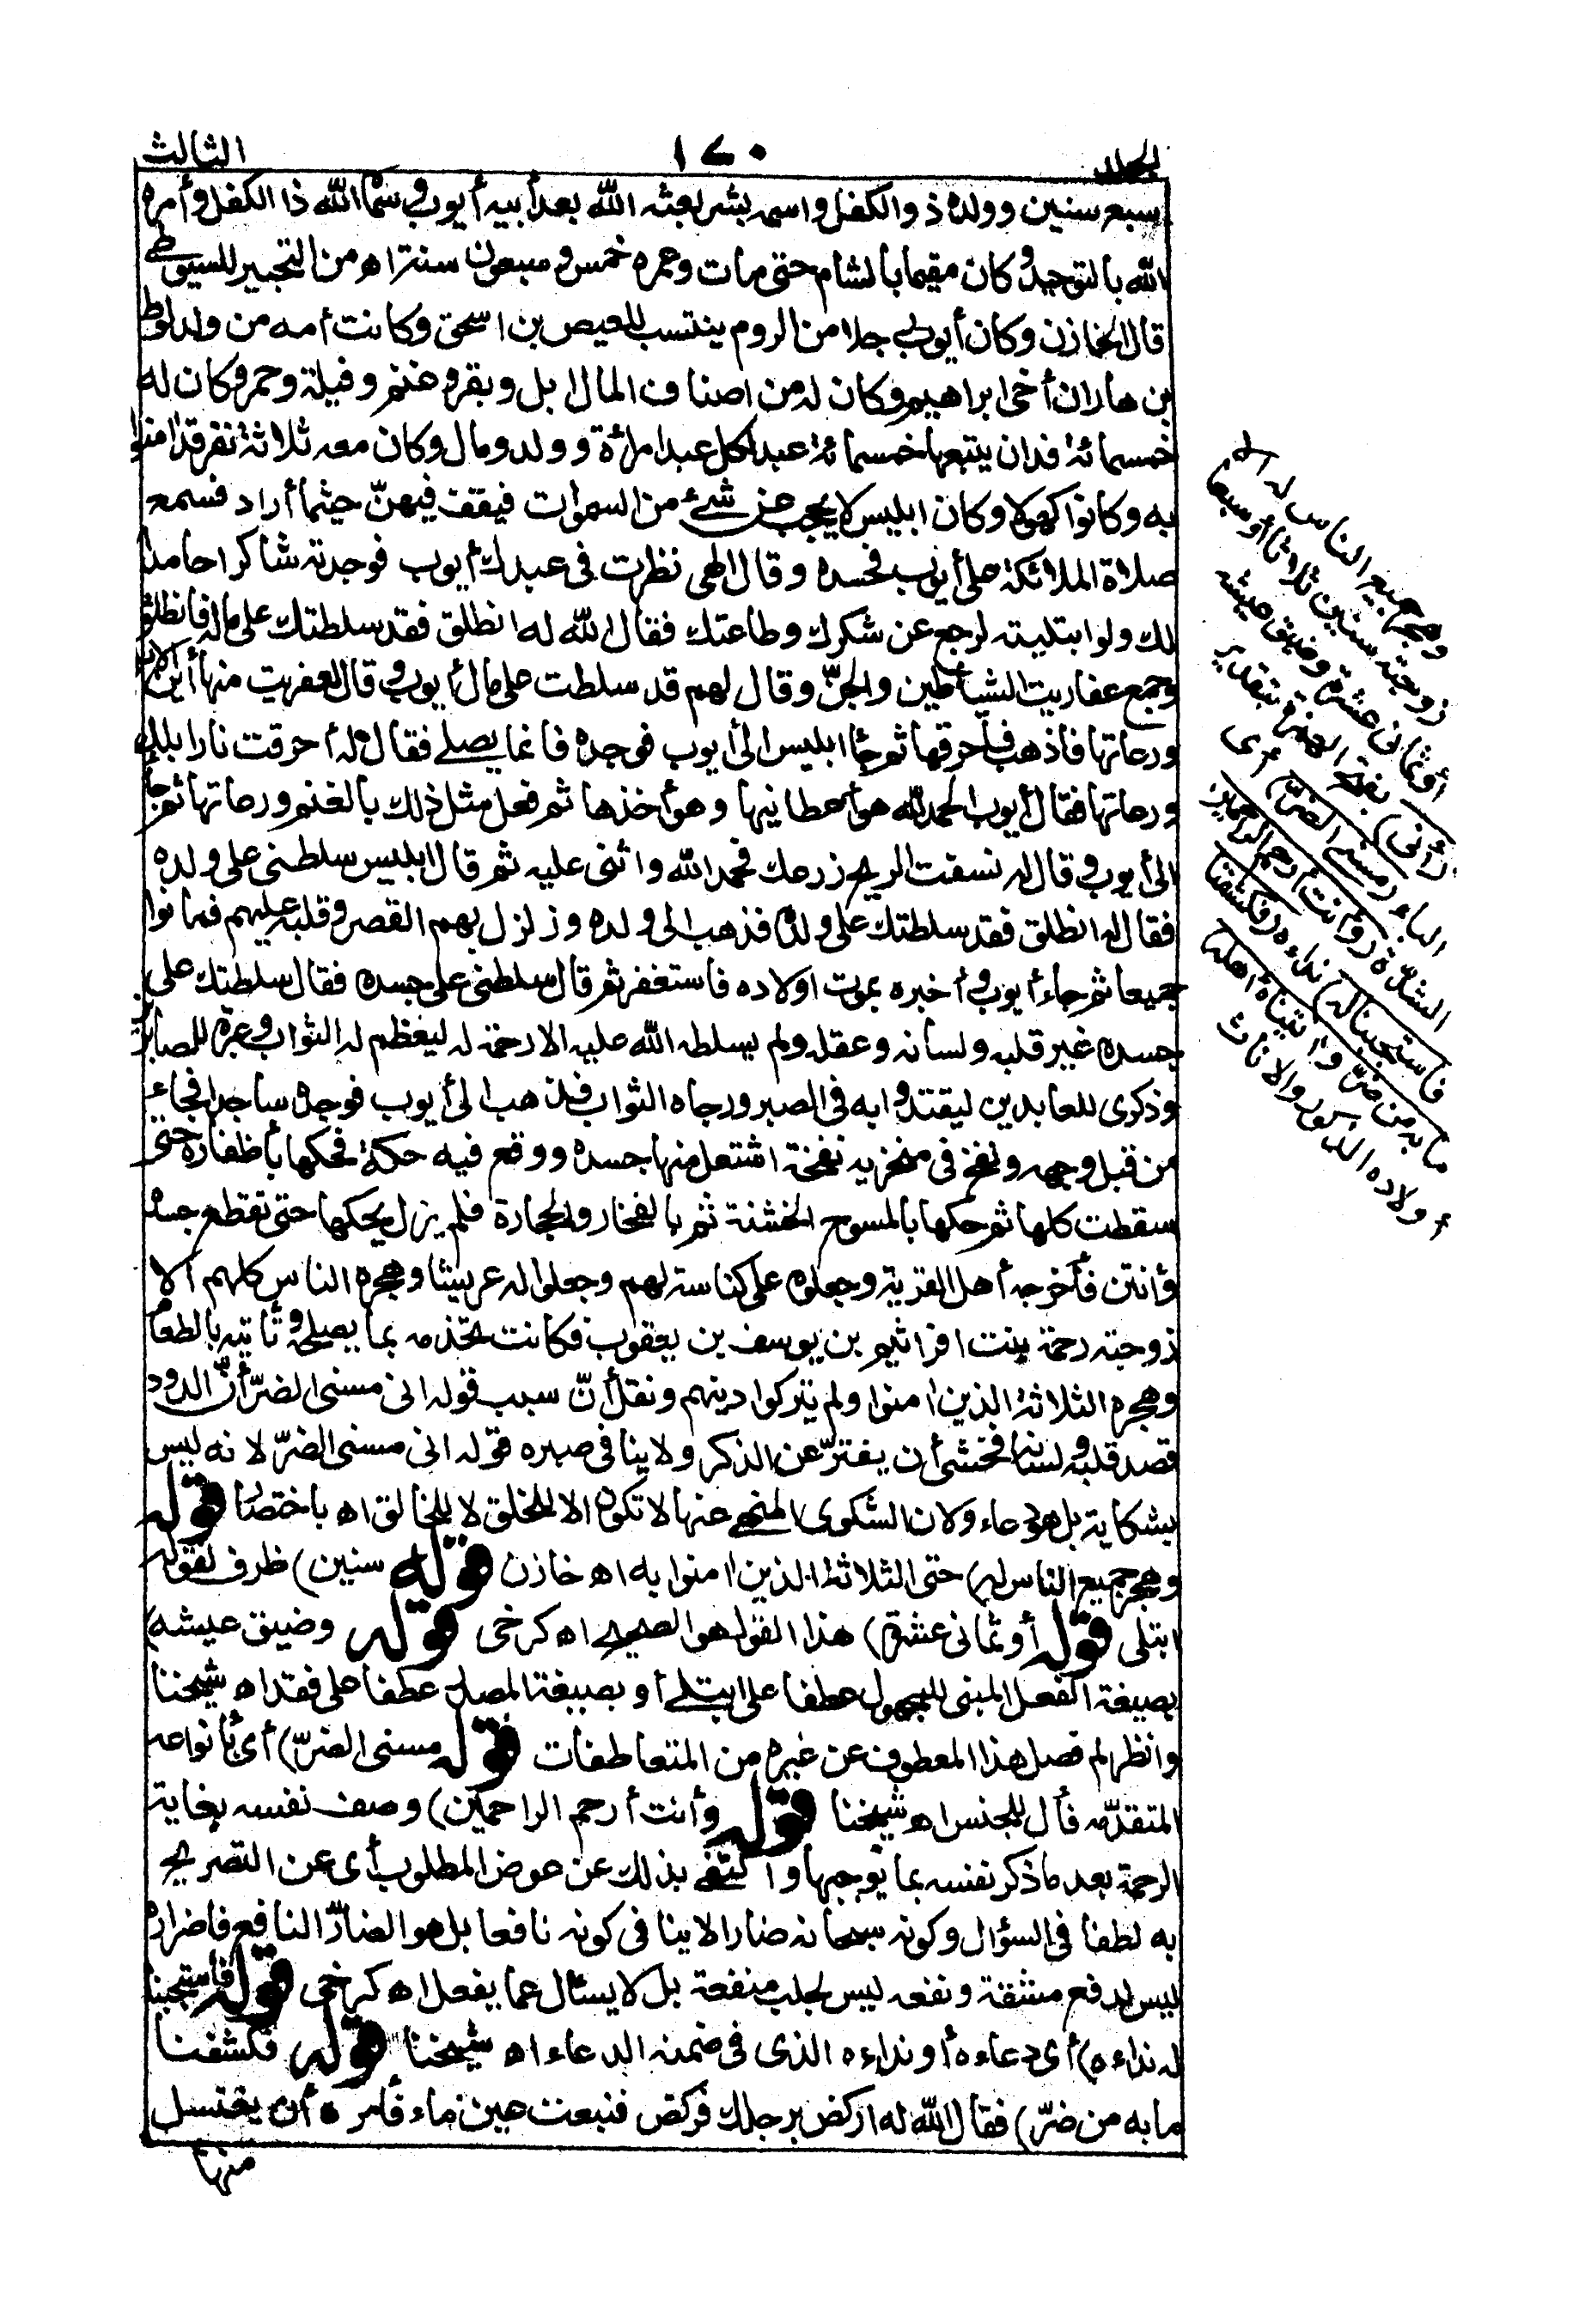 المجلد ١٤٠ الثالث
سبع سنين وولده ذو الكفل واسمه بشر بعثه الله بعد أبيه أيوب وسماه الله ذا الكفل وأمره
الله بالتوحيد وكان مقيما بالشام حتى مات وعمره خمس وسبعون سنة اه من التحبير للسيوطي
قال الخازن وكان أيوب رجلا من الروم ينتسب للعيص بن اسحق وكانت أمه من ولد لوط
بن هاران أخى ابراهيم وكان له من اصناف المال ابل وبقر وغنم وفيلة وحمر وكان له
خمسمائة فدان يتبعها خمسمائة عبد لكل عبد امرأة وولد ومال وكان معه ثلاثة نفر قد امنوا
به وكانوا كهولا وكان ابليس لا يحجب عن شئ من السموات فيقف فيهن حيثما أراد فسمع
صلاة الملائكة على أيوب فحسده وقال الهى نظرت فى عبدك أيوب فوجدته شاكرا حامدا
لك ولو ابتليته لرجع عن شكرك وطاعتك فقال الله له انطلق فقد سلطتك على ماله فانطلق
وجمع عفاريت الشياطين والجنّ وقال لهم قد سلطت على مال أيوب وقال لعفريت منها أين الابل
ورعاتها فاذهب فأحرقها ثم جاء ابليس الى أيوب فوجده قائما يصلى فقال له أحرقت نار ابلك
ورعاتها فقال أيوب الحمد لله هو أعطانيها وهو أخذها ثم فعل مثل ذلك بالغنم ورعاتها ثم جاء
الى أيوب وقال له نسفت الريح زرعك فحمد الله واثنى عليه ثم قال ابليس سلطنى على ولده
فقال له انطلق فقد سلطتك على ولده فذهب الى ولده وزلزل بهم القصر وقلبه عليهم فماتوا
جميعا ثم جاء أيوب وأخبره بموت اولاده فاستغفر ثم قال سلطنى على جسده فقال سلطتك على
جسده غير قلبه ولسانه وعقله ولم يسلطه الله عليه الا رحمة له ليعظم له الثواب وعبرة للصابرين
وذكرى للعابدين ليقتدوا به فى الصبر ورجاء الثواب فذهب الى أيوب فوجده ساجدا فجاء
من قبل وجهه ونفخ فى منخريه نفخة اشتعل منها جسده ووقع فيه حكة فحكها بأظفاره حتى
سقطت كلها ثم حكها بالمسوح الخشنة ثم بالفخار والحجارة فلم يزل يحكها حتى تقطع جسده
وأنتن فأخرجه أهل القرية وجعلوه على كناسة لهم وجعلوا له عريشا وهجره الناس كلهم الا
زوجته رحمة بنت افراثيم بن يوسف بن يعقوب فكانت تخدمه بما يصلحه وتأتيه بالطعام
وهجره الثلاثة الذين امنوا ولم يتركوا دينهم ونقل أنّ سبب قوله انى مسنى الضرّ أنّ الدود
قصد قلبه ولسانه فخشى أن يفترّ عن الذكر ولا ينافى صبره قوله انى مسنى الضرّ لانه ليس
بشكاية بل هو دعاء ولان الشكوى المنهى عنها لا تكون الا للخلق لا للخالق اه باختصار قوله
وهجر جميع الناس له) حتى الثلاثة الذين امنوا به اه خازن قوله سنين) ظرف لقوله
ابتلى قوله أو ثمانى عشرة) هذا القول هو الصحيح اه كرخى قوله وضيق عيشه)
بصيغة الفعل المبنى للمجهول عطفا على ابتلى أو بصيغة المصدر عطفا على فقد اه شيخنا
وانظر لم فصل هذا المعطوف عن غيره من المتعاطفات قوله مسنى الضرّ) أى بأنواعه
المتقدّمة فأل للجنس اه شيخنا قوله وأنت أرحم الراحمين) وصف نفسه بغاية
الرحمة بعد ما ذكر نفسه بما يوجبها واكتفى بذلك عن عرض المطلوب أى عن التصريح
به لطفا فى السؤال وكونه سبحانه ضارا لا ينافى كونه نافعا بل هو الضارّ النافع فاضراره
ليس لدفع مشقة ونفعه ليس لجلب منفعة بل لا يسئال عما يفعل اه كرخى قوله فاستجبنا
له نداءه) أى دعاءه أو نداءه الذى فى ضمنه الدعاء اه شيخنا قوله فكشفنا
ما به من ضرّ) فقال الله له اركض برجلك فركض فنبعت عين ماء فأمره أن يغتسل
منها
وهجر جميع الناس له الا
زوجته سنين ثلاثا أو سبعا
أو ثمانى عشرة وضيق عيشه
(أنى) بفتح الهمزة بتقدير
الباء (مسنى الضرّ) أى
الشدّة (وأنت أرحم الراحمين
فاستجبنا له) نداءه (فكشفنا
ما به من ضرّ واتيناه أهله)
أولاده الذكور والاناث